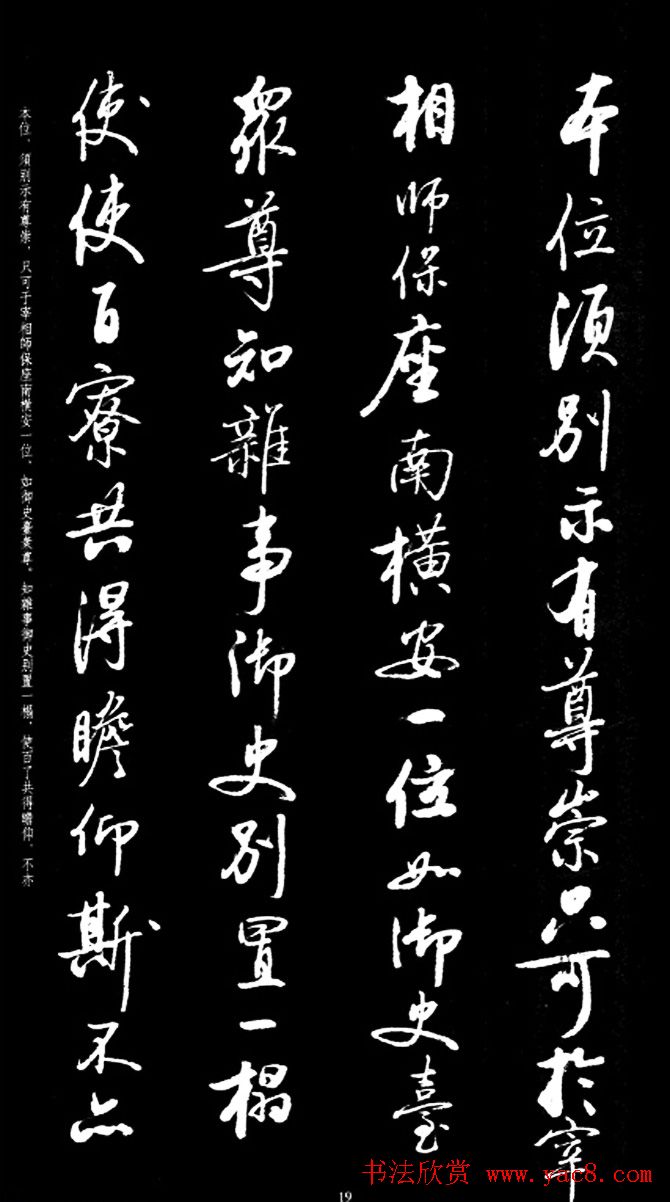 本位須別示有尊崇只可於宰
相師保座南橫安一位如御史臺
眾尊知雜事御史別置一榻
使使百寮共得瞻仰斯不亦
本位、須别示有尊崇，只可于宰相師保座南横安一位、如御史臺衆尊。知雜事御史别置一榻，使百了共得瞻仰，不亦
19
书法欣赏 www.yac8.com